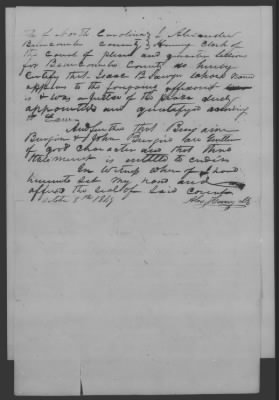 of North Carolina } I Alexander
Buncombe County } Henry Clerk of
the Court of pleas and quarter sessions
for Buncombe County do hereby
certify that Isaac B Sawyer whose name
appears to the foregoing affidavit
is & was a justice of the peace duly
appointed and qualifyd according
to Law
And further that Benjamin
Burgin & John Burgin are
of good character and that there
statement is entitled to
In Witness whereof I have
hereunto set my hand and
affixed the seal of said County
October 5th 1849
Alex Henry Clk